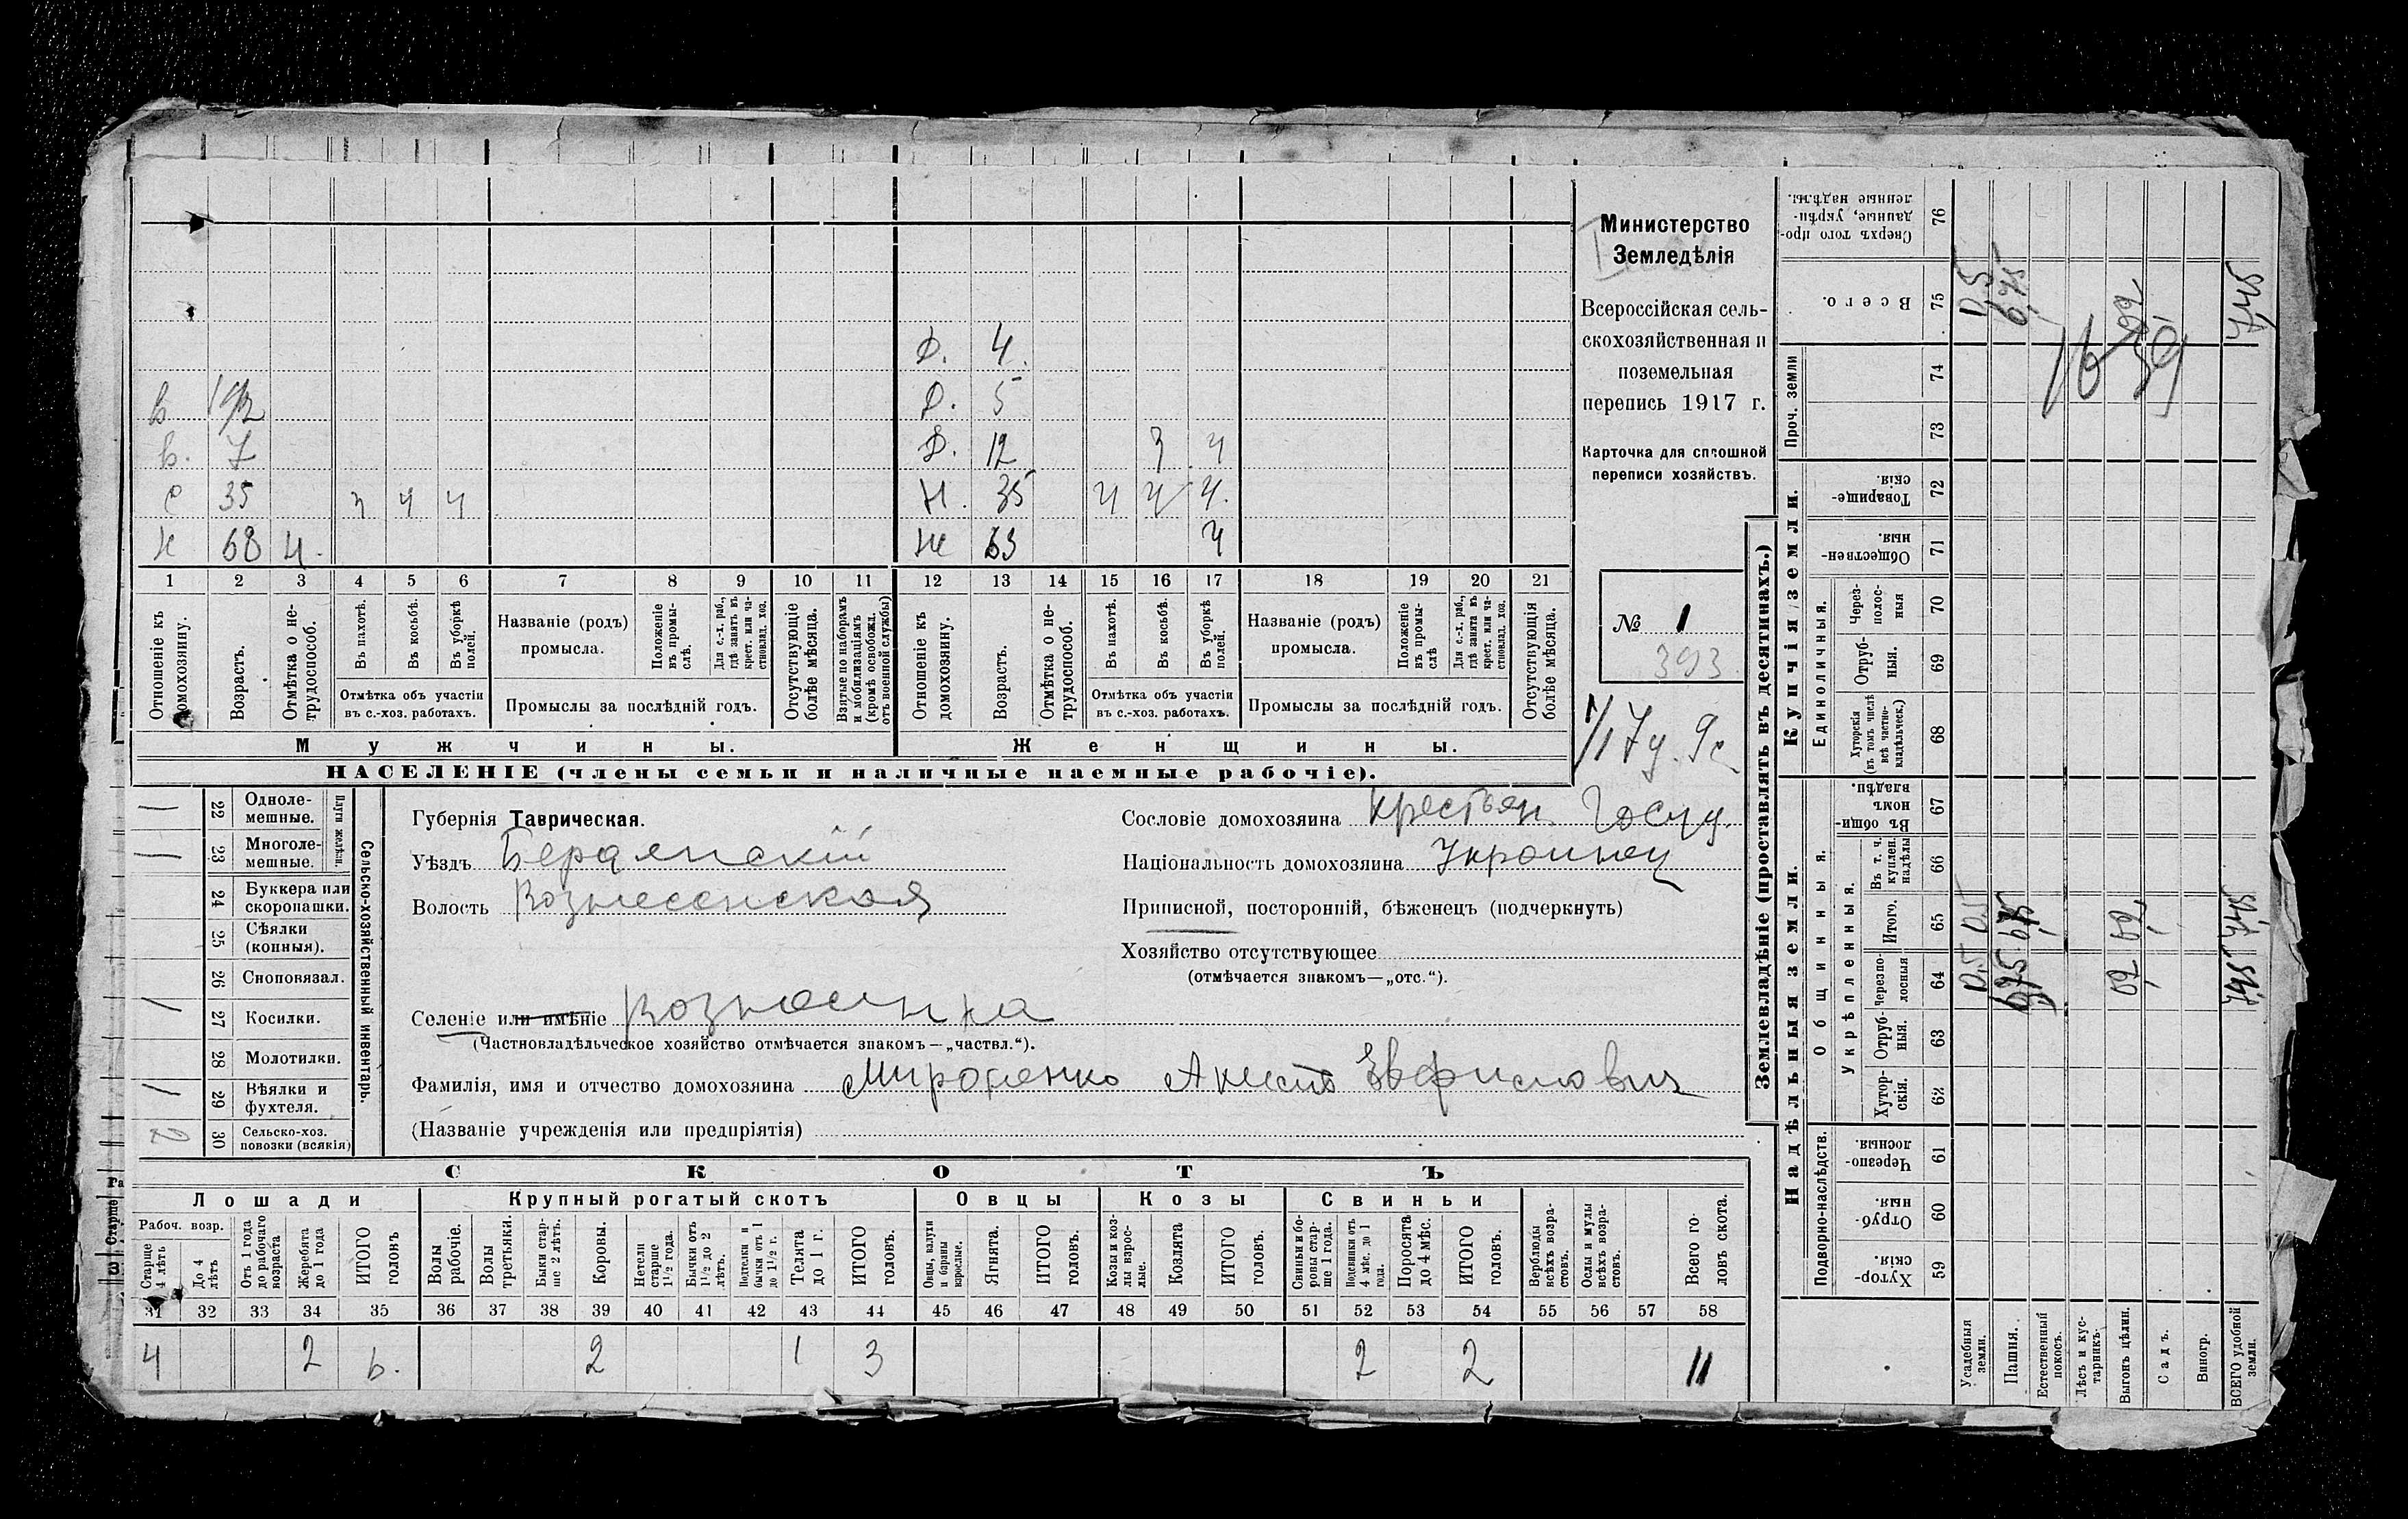 Министерство
Земледѣлія
Всероссійская сель-
скохозяйственная и
поземельная
перепись 1917 г.
Карточка для сплошной
переписи хозяйствъ.
№ 1
393
Д. 4
Д. 5
в 1 1/2
в. 7 Д. 12 ч ч
с 35 ч ч ч Ж. 35 ч ч ч.
х 68 н. Ж 63 ч
1 2 3 4 5 6 7 8 9 10 11 12 13 14 15 16 17 18 19 20 21
Отношеніе къ домохозяину.
Возрастъ.
Отмѣтка о не-трудоспособ.
Въ пахотѣ.
Въ косьбѣ.
Въ уборкѣ полей.
Отмѣтка объ участіи
въ с.-хоз. работахъ.
Названіе (родъ)
промысла.
Положеніе въ промы-слѣ.
Для с.-х. раб., гдѣ занятъ въ крест. или ча-стновлад. хоз.
Промыслы за послѣдній годъ.
Отсутствующіе болѣе мѣсяца.
Взятые по наборамъ и мобилизаціямъ (кромѣ освобожд. отъ военной службы)
Отношеніе къ домохозяину.
Возрастъ.
Отмѣтка о не-трудоспособ.
Въ пахотѣ.
Въ косьбѣ.
Въ уборкѣ полей.
Отмѣтка объ участіи
въ с.-хоз. работахъ.
Названіе (родъ)
промысла.
Положеніе въ промы-слѣ
Для с.-х. раб., гдѣ занята въ крест. или ча-стновлад. хоз.
Промыслы за послѣдній годъ.
Отсутствующія болѣе мѣсяца.
Мужчины. Женщины.
НАСЕЛЕНІЕ (члены семьи и наличные наемные рабочіе).
Сельско-хозяйственный инвентарь.
Плуги желѣзн.
22 Одноле-мешные.
23 Многоле-мешные.
24 Буккера или скоропашки.
25 Сѣялки (конныя).
26 Сноповязал.
27 Косилки.
28 Молотилки.
29 Вѣялки и фухтеля.
30 Сельско-хоз. повозки (всякія)
Губернія Таврическая.
Уѣздъ Бердянскій
Волость Вознесенская
Селеніе или имѣніе Вознесенка
(Частновладѣльческое хозяйство отмѣчается знакомъ—„частвл.“).
Фамилія, имя и отчество домохозяина Мироненко
(Названіе учрежденія или предпріятія)
Сословіе домохозяина крестьян. Госуд.
Національность домохозяина Украинец
Приписной, посторонній, бѣженецъ (подчеркнуть)
Хозяйство отсутствующее
(отмѣчается знакомъ—„отс.“).
СКОТЪ
Лошади Крупный рогатый скотъ Овцы Козы Свиньи
Рабоч. возр.
Старше 4 лѣтъ
До 4 лѣтъ
Отъ 1 года до рабочаго возраста
Жеребята до 1 года
ИТОГО головъ
Волы рабочіе.
Волы третьяки.
Быки стар-ше 2 лѣтъ.
Коровы.
Нетели старше 1 1/2 года.
Бычки отъ 1 1/2 до 2 лѣтъ.
Подтелки и бычки отъ 1 до 1 1/2 г.
Телята до 1 г.
ИТОГО головъ.
Овцы, валухи и бараны взрослые.
Ягнята.
ИТОГО головъ.
Козы и коз-лы взрос-лые.
Козлята
ИТОГО головъ.
Свиньи и бо-ровы стар-ше 1 года.
Подсвинки отъ 4 мѣс. до 1 года.
Поросята до 4 мѣс.
ИТОГО головъ.
Верблюды всѣхъ возра-стовъ.
Ослы и мулы всѣхъ возра-стовъ.
Всего го-ловъ скота.
31 32 33 34 35 36 37 38 39 40 41 42 43 44 45 46 47 48 49 50 51 52 53 54 55 56 57 58
4 2 6. 2 1 3 2 2 11
Землевладѣніе (проставлять въ десятинахъ.)
Купчія земли.
Надѣльныя земли.
Сверхъ того про-данные, укрѣп-ленные надѣлы. 76
Всего. 75
Проч. земли 74 73
Товарище-скія. 72
Обществен-ныя. 71
Единоличныя.
Через-полос-ныя 70
Отруб-ныя. 69
Хуторскія (въ томъ числѣ всѣ частно-владѣльческ.) 68
Общинныя.
Въ общин-номъ владѣн. 67
Укрѣпленныя.
Въ т. ч. куплен. надѣлы 66
Итого. 65
Черезпо-лосныя 64
Отруб-ныя. 63
Хутор-скія. 62
Подворно-наслѣдств.
Черезпо-лосныя. 61
Отруб-ныя. 60
Хутор-скія. 59
Усадебныя земли. 0,5 0,5 0,5
Пашня. 6,75 6,75 6,75
Естественный покосъ.
Лѣсъ и кус-тарникъ.
Выгонъ цѣлин.
Садъ.
Виногр.
ВСЕГО удобной земли. 7,45 7,45 7,45